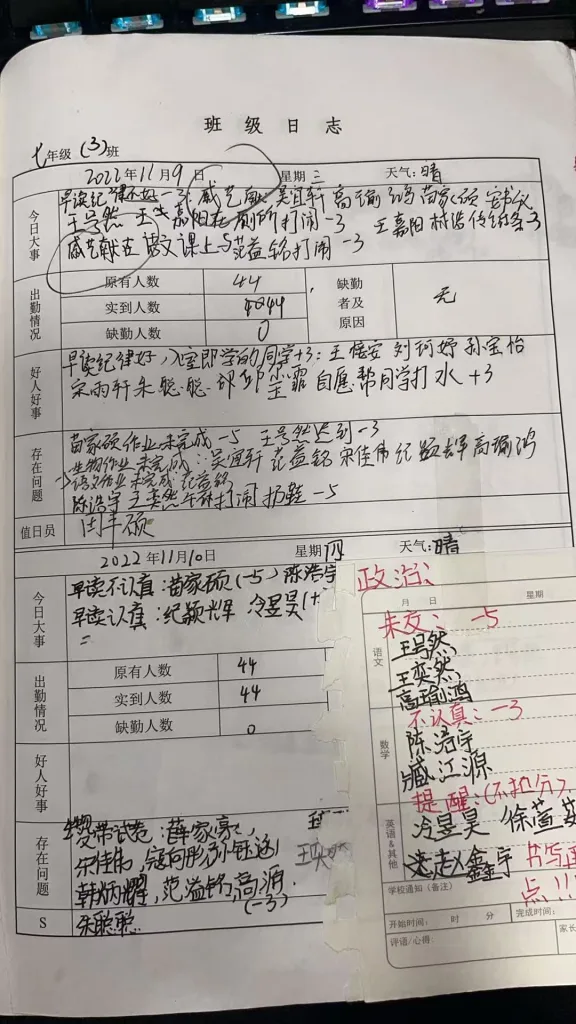 班级日志
七年级 (3)班
2022年11月9日 星期三 天气:晴
今日大事
早读纪律不好 -3: 臧艺献 吴宜轩 高瑜鸿 苗家硕
王号然 王嘉阳在厕所打闹 -3 王嘉阳 林浩传纸条-3
臧艺献在语文课上与范益铭打闹 -3
出勤情况
原有人数 44
实到人数 44
缺勤人数 0
缺勤者及原因 无
好人好事
早读纪律好,入室即学的同学+3: 王愔安 刘珂妤 孙宝怡
宋雨轩 朱聪聪 自愿帮同学打水 +3
存在问题
苗家硕作业未完成 -5 王号然迟到 -3
生物作业未完成: 吴宜轩 范益铭 宋佳伟 纪颖辉 高瑜鸿
语文作业未完成 范益铭
陈浩宇 王奕然 打闹 扔鞋 -5
值日员 闫丰硕
2022年11月10日 星期四 天气:晴
今日大事
早读不认真: 苗家硕(-5) 陈浩宇
早读认真: 纪颖辉 冷昱昊(+
出勤情况
原有人数 44
实到人数 44
缺勤人数 0
好人好事
存在问题
没带试卷: 薛家豪
宋佳伟
韩炳耀, 范益铭 高
(-3)
S 朱聪聪
政治:
月 日 星期
未交: -5
语文
王号然
王奕然
高瑜鸿
不认真: -3
数学
陈浩宇
臧江源
提醒:(不扣分)
英语&其他
冷昱昊 徐萱
赵鑫宇 书写
点!!!
学校通知(备注)
开始时间: 时 分 完成时间:
评语/心得: 家长